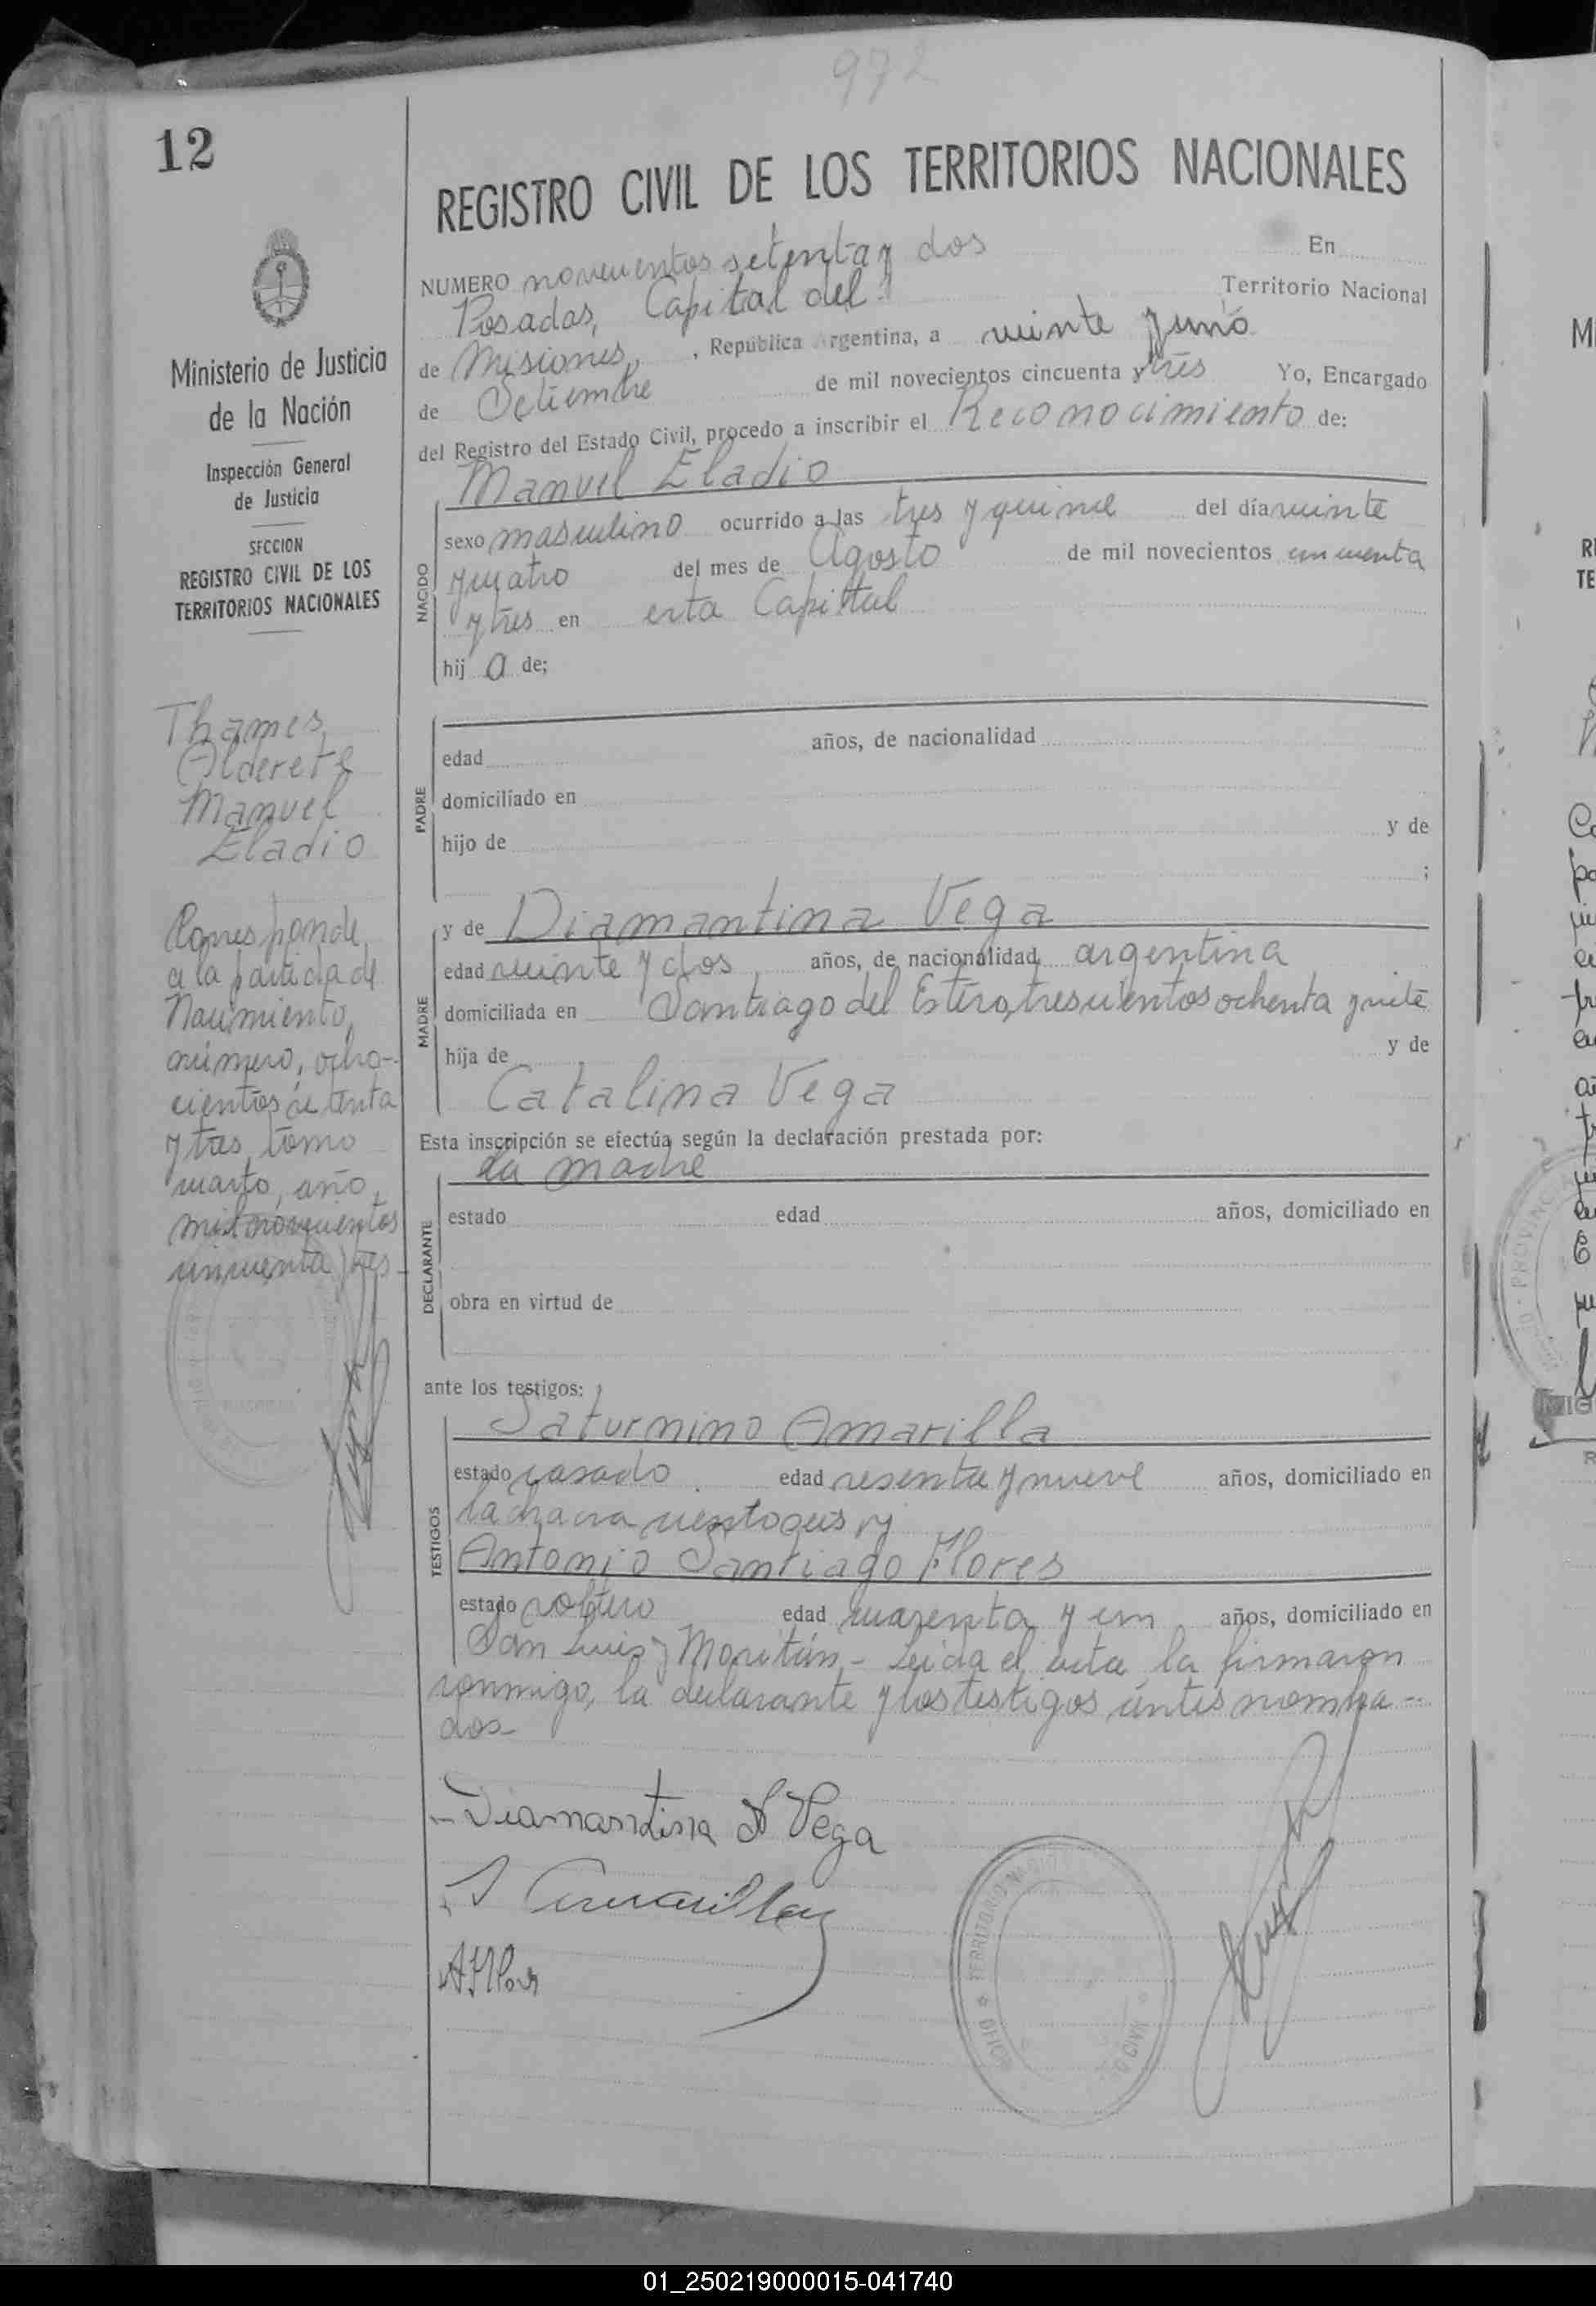 972
12
REGISTRO CIVIL DE LOS TERRITORIOS NACIONALES
NUMERO novecientos setenta y dos En
Posadas, Capital del Territorio Nacional
de Misiones, , República Argentina, a veinte y uno
de Setiembre de mil novecientos cincuenta y tres Yo, Encargado
del Registro del Estado Civil, procedo a inscribir el Reconocimiento de:
Manuel Eladio
NACIDO
sexo masculino ocurrido a las tres y quince del día veinte
y cuatro del mes de Agosto de mil novecientos cincuenta
y tres en esta Capital
hij a de;
PADRE
edad años, de nacionalidad
domiciliado en
hijo de y de
;
y de Diamantina Vega
MADRE
edad veinte y dos años, de nacionalidad argentina
domiciliada en Santiago del Estero, trescientos ochenta y siete
hija de y de
Catalina Vega
Esta inscripción se efectúa según la declaración prestada por:
la madre
DECLARANTE
estado edad años, domiciliado en
obra en virtud de
ante los testigos:
Saturnino Amarilla
TESTIGOS
estado casado edad sesenta y nueve años, domiciliado en
la chacra ciento seis y
Antonio Santiago Flores
estado soltero edad cuarenta y un años, domiciliado en
San Luis y Moritán,- Leída el acta la firmaron
conmigo, la declarante y los testigos ántes nombra-
dos-
Diamantina Vega
S Amarilla
A S Flores
Ministerio de Justicia
de la Nación
Inspección General
de Justicia
SECCION
REGISTRO CIVIL DE LOS
TERRITORIOS NACIONALES
Thames
Alderete
Manuel
Eladio
Corresponde
a la partida de
Nacimiento,
número, ocho-
cientos setenta
y tres, tomo
cuarto, año
mil novecientos
cincuenta y tres
01_250219000015-041740